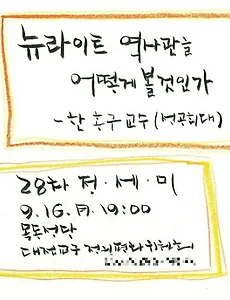 뉴라이트 역사관을
어떻게 볼것인가
- 한홍구 교수 (성공회대)
28차 정·세·미
9.16.月.19:00
목동성당
대전교구 정의평화위원회